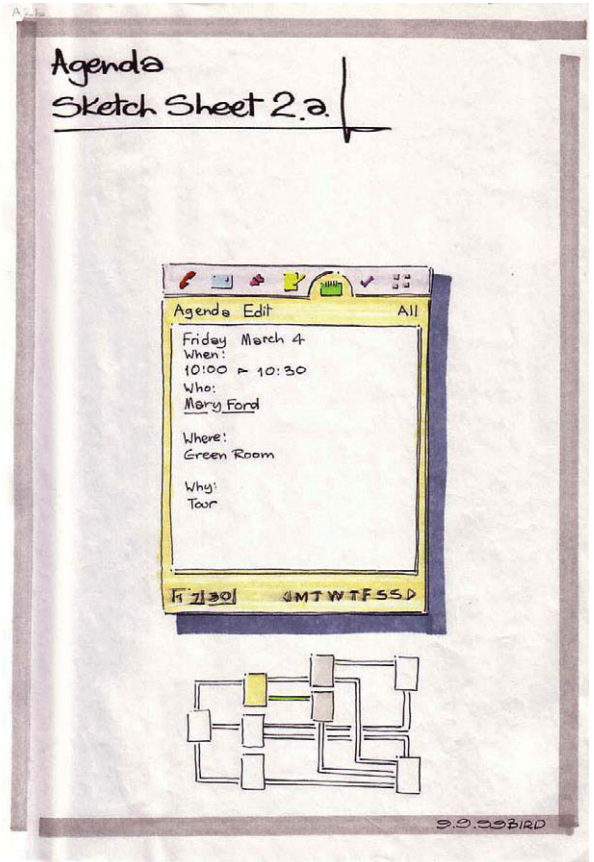 Agenda
Sketch Sheet 2.a.
Agenda Edit All
Friday March 4
When:
10:00 ▻ 10:30
Who:
Mary Ford
Where:
Green Room
Why:
Tour
1 7 30 ◁ M T W T F S S ▷
9.9.99 BIRD